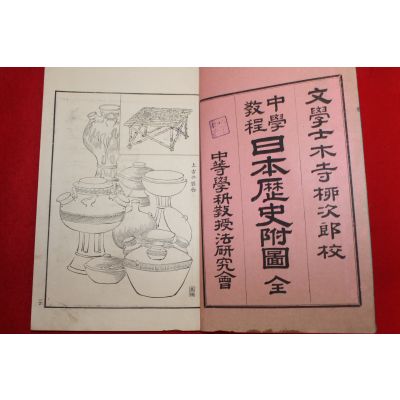 文學士木寺柳次郎校
中學
教程
日本歷史附圖 全
中等學科教授法研究會